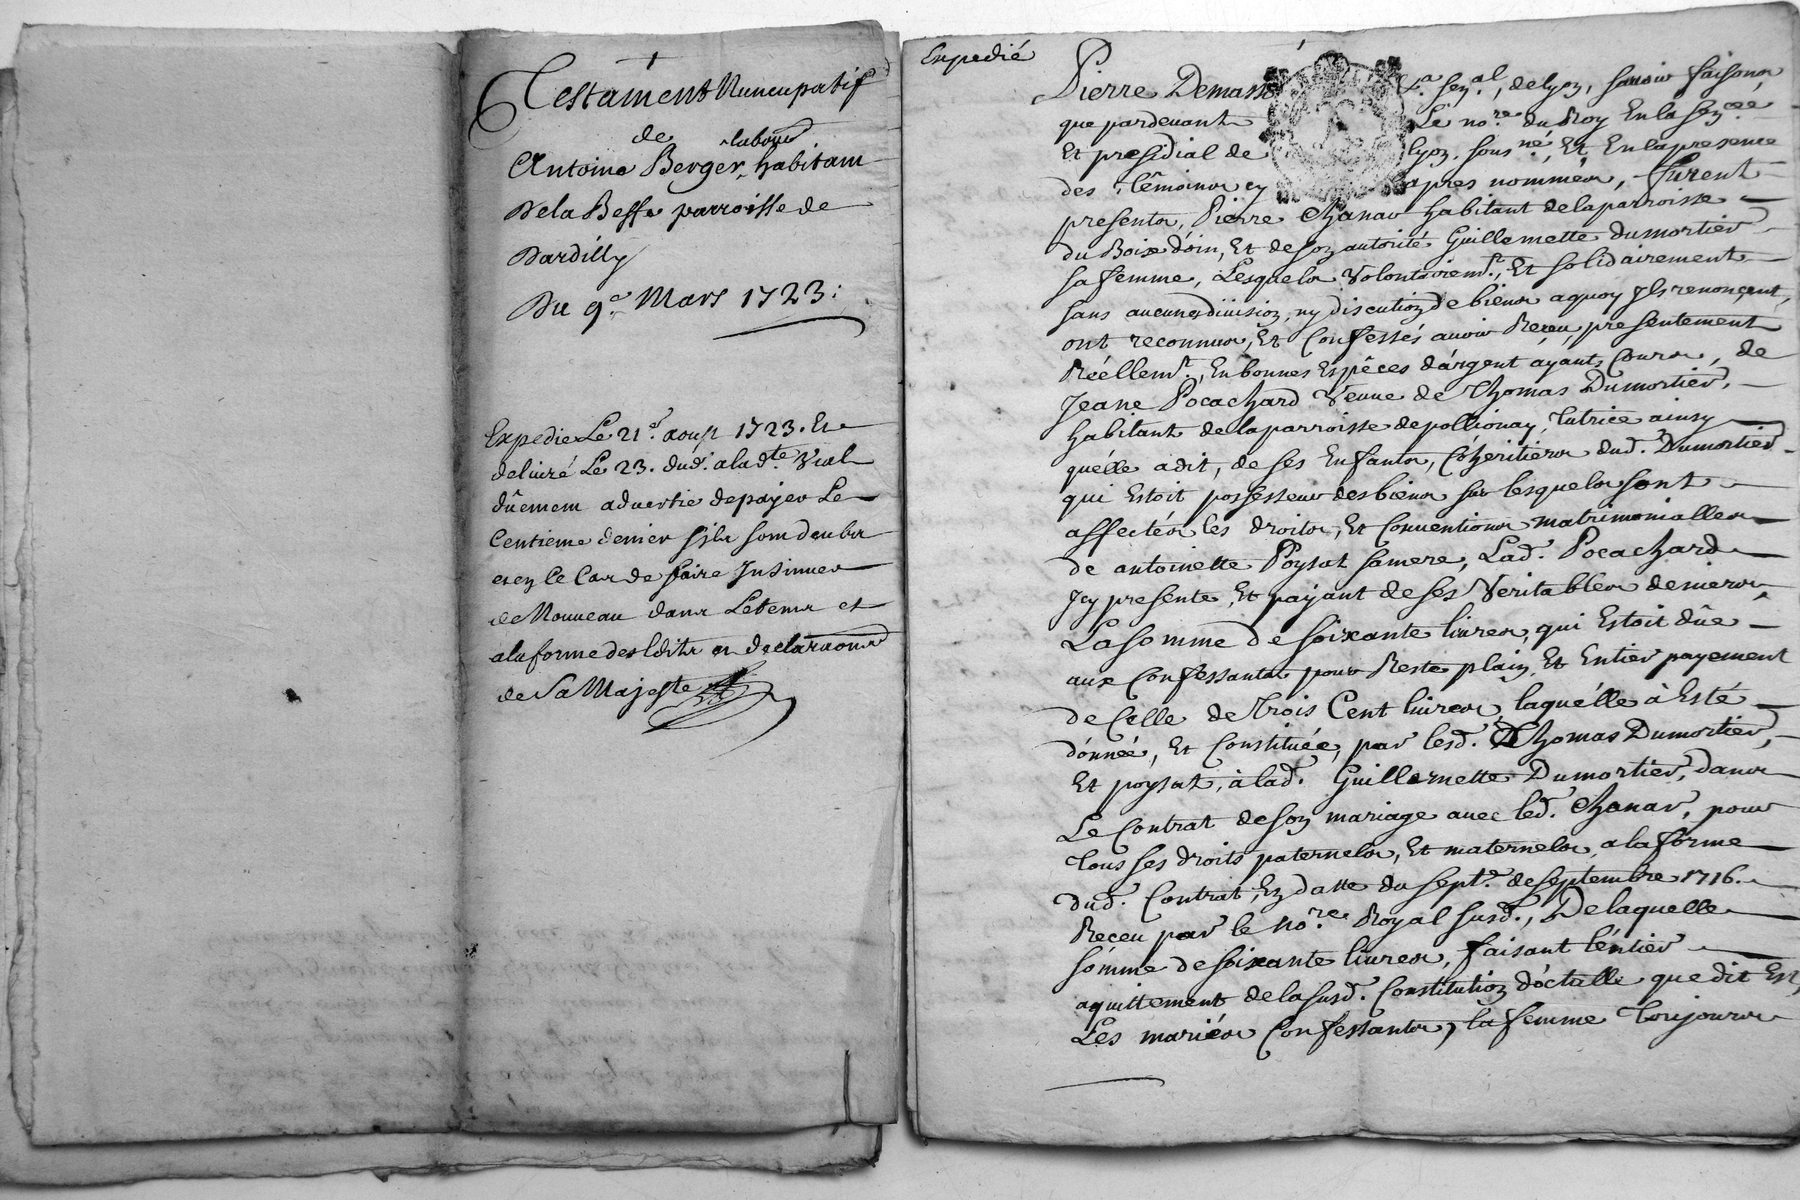 Testament Nuncupatif
de
Antoine Berger, labour habitant
Dela Beffe parroisse de
Dardilly
Du 9e Mars 1723:
Expedie Le 21e. aoust 1723. Et
deliuré Le 23. dud. alad.te Vial
dûement aduertie depayer Le
Centieme denier sils sont deubs
et en Ce Cas de faire Insinuer
de Nouveau dans Letems et
ala forme des Edits et declarations
de Sa Majeste
Expedié
Pierre Demasso La sen.al, de lyon, savoir faisons
que pardeuant Le no.re du Roy En la sen.cée
Et presidial de lyon sous.né, Et En la presence
des têmoins cy apres nommés, furent
presents, Pierre Chanav habitant de la parroisse
du Boix d'oin, Et de son autorité Guillemette dumortier
sa femme, Lesquels Volontairem.t, Et solidairement
sans aucune diuision, ny discution de biens aquoy Ils renonçent,
ont reconnus, Et Confessés auoir Reçeu, presentement
Réellem.t, En bonnes Espêces d'argent ayants Cours, de
Jeane Pocachard Veuue de Thomas Dumortier,
habitant de la parroisse de pollionay, tutrice ainsy
qu'elle a dit, de ses Enfants, Cohéritiers dud. Dumortier
qui Estoit possesseur des biens sur lesquels sont
affectés les droits, Et Conuentions matrimonialles
de antoinette Poysat sa mere, Lad. Pocachard
Icy presente, Et payant de ses Veritables deniers,
La somme de soixante liures, qui Estoit dûe
aux Confessants pour Reste plain, Et Entier payement
de Celle de Trois Cent liures, laquélle à Esté
donnée, Et Constituée, par lesd. Thomas Dumortier,
Et poysat, à lad. Guillemette Dumortier, dans
Le Contrat de son mariage auec led. Chanav, pour
tous ses droits paternels, Et maternels, a la forme
dud. Contrat, En datte du sept.e de septembre 1716.
Reçeu par le No.re Royal susd., De laquelle
somme de soixante liures, faisant l'éntier
aquittement de la susd. Constitution d'octelle que dit Est,
Les mariés Confessants, la femme Toujours